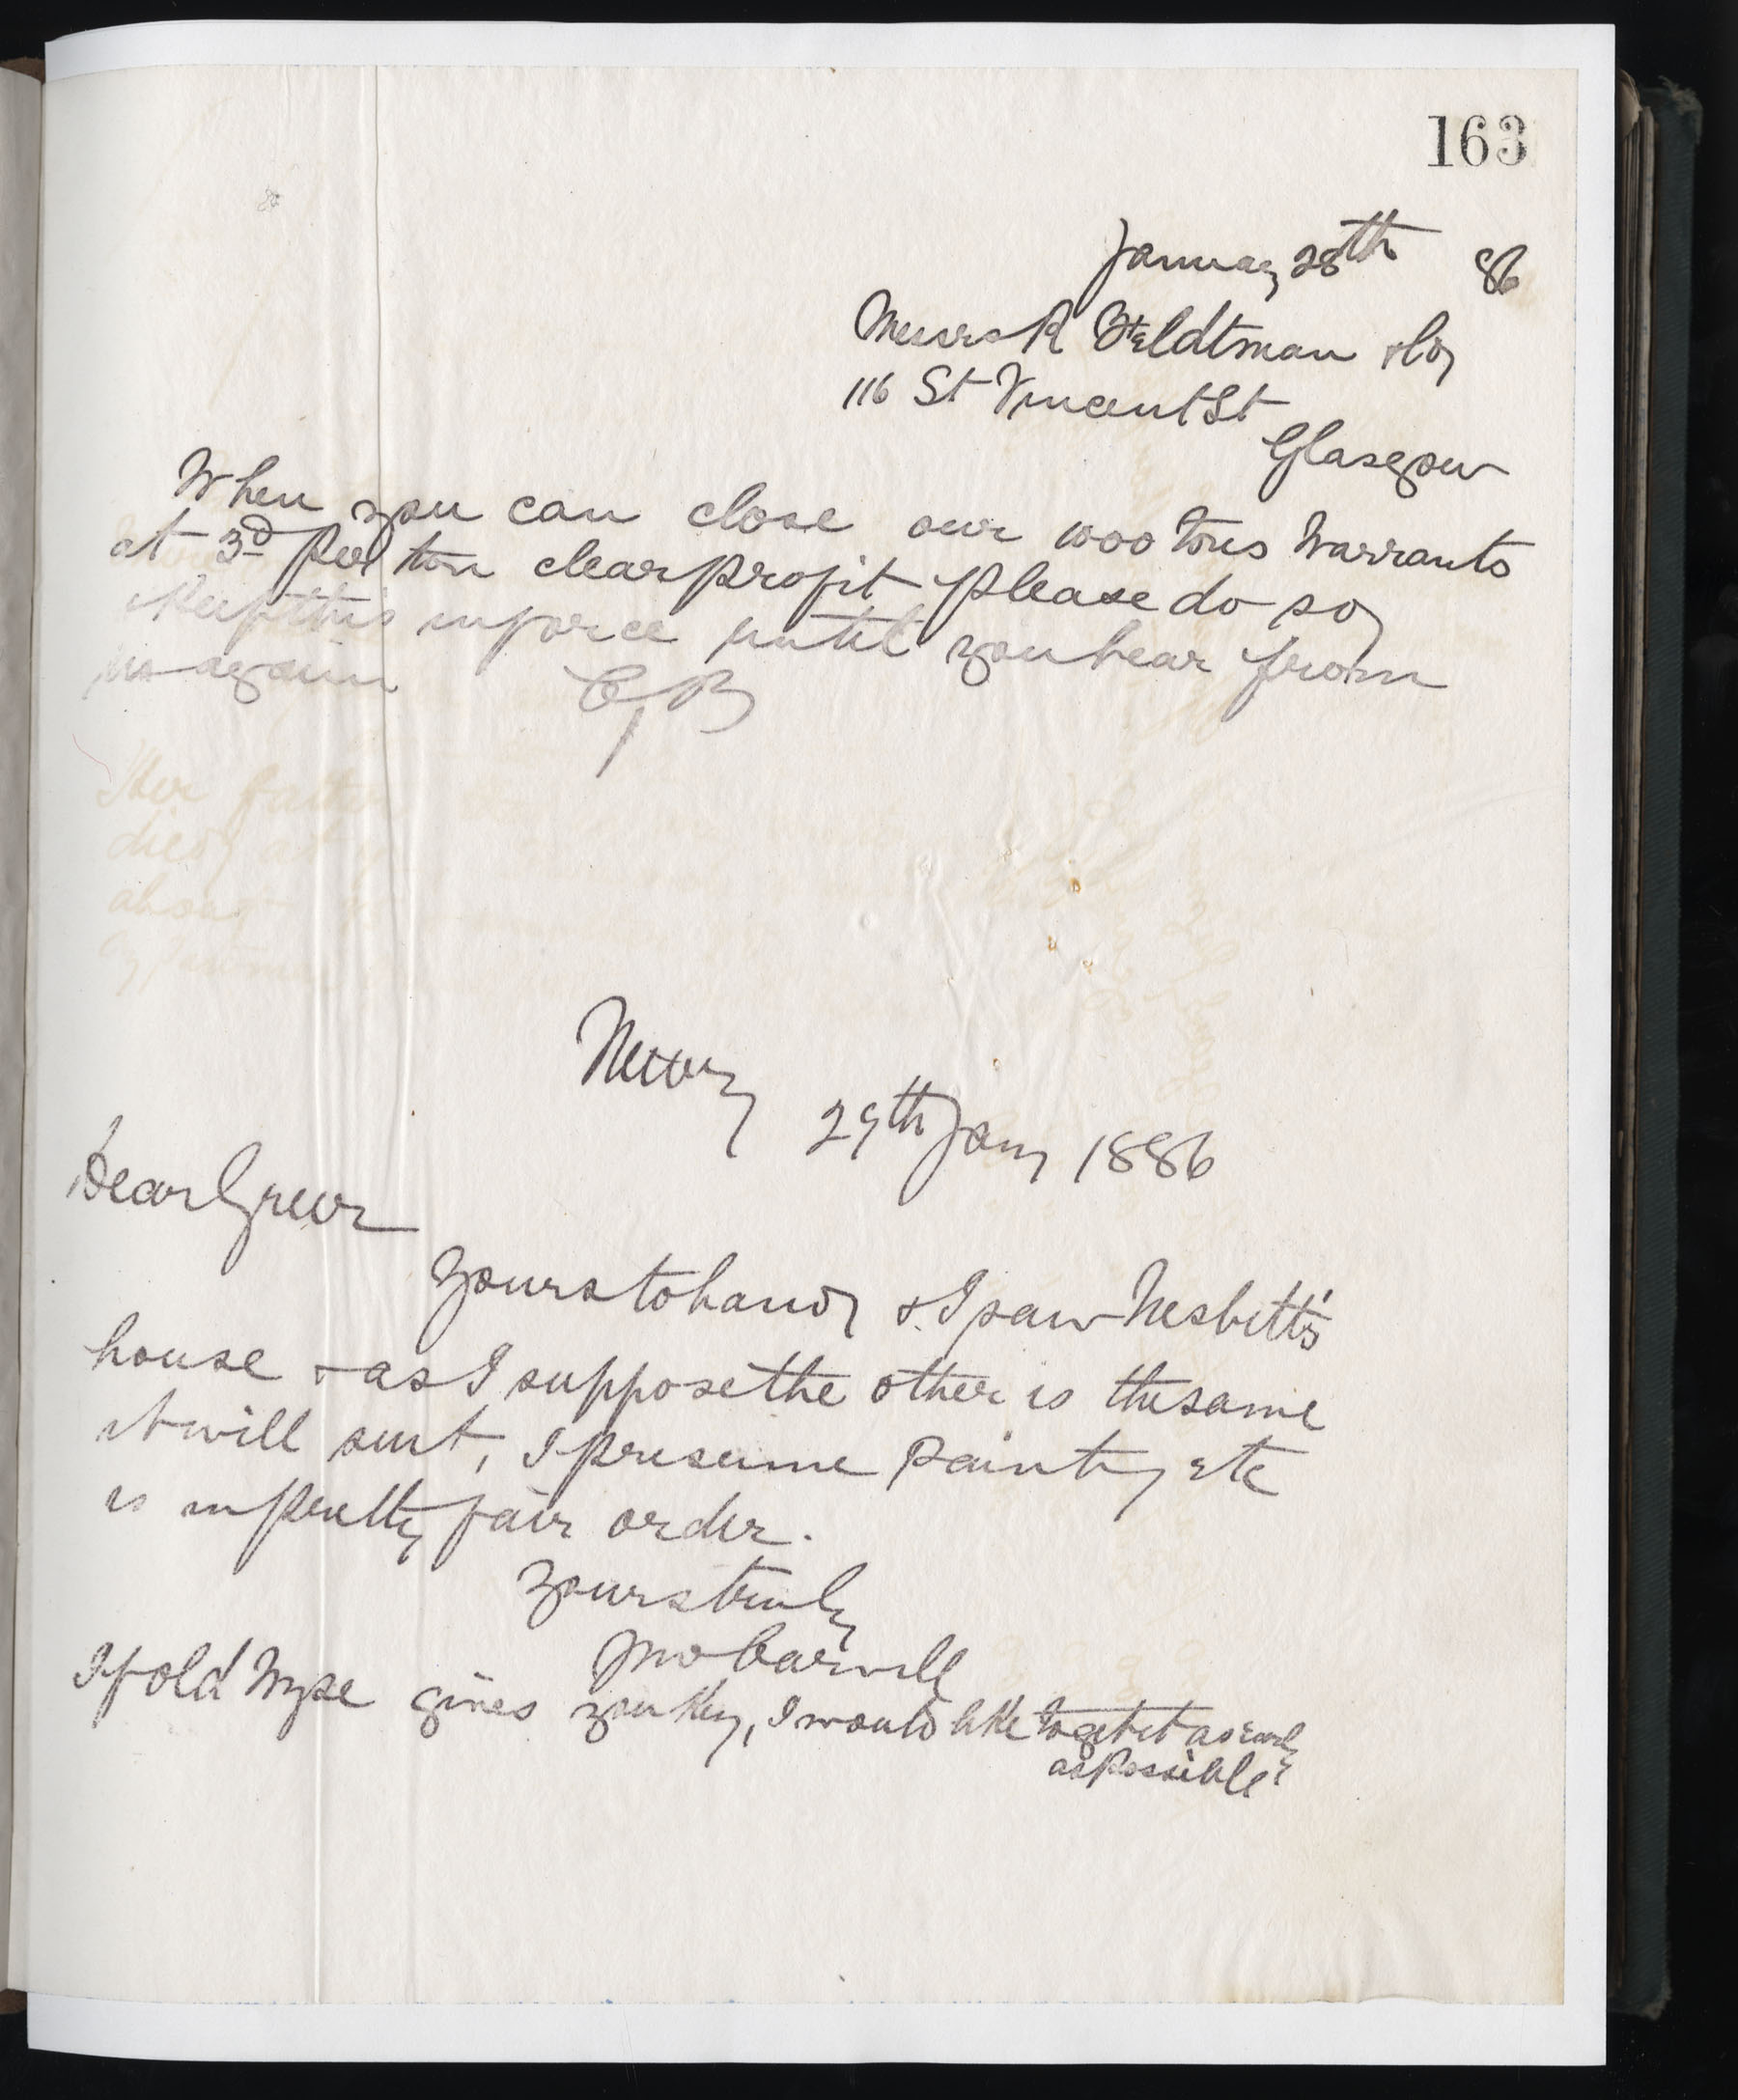 163
January 28th 86
Messrs R Feldtman & Co
116 St Vincent St
Glasgow
When you can close our 1000 tons Warrants
at 3d per ton clear profit please do so
Keep this in force until you hear from
us again
C & B
Newry
29th Jany 1886
Dear Greer
Yours to hand & I saw Nesbitt's
house & as I suppose the other is the same
it will suit, I presume paint, etc
is in pretty fair order.
Yours truly
Jno Carvill
If old Wyse gives you key, I would like to get it as early
as possible